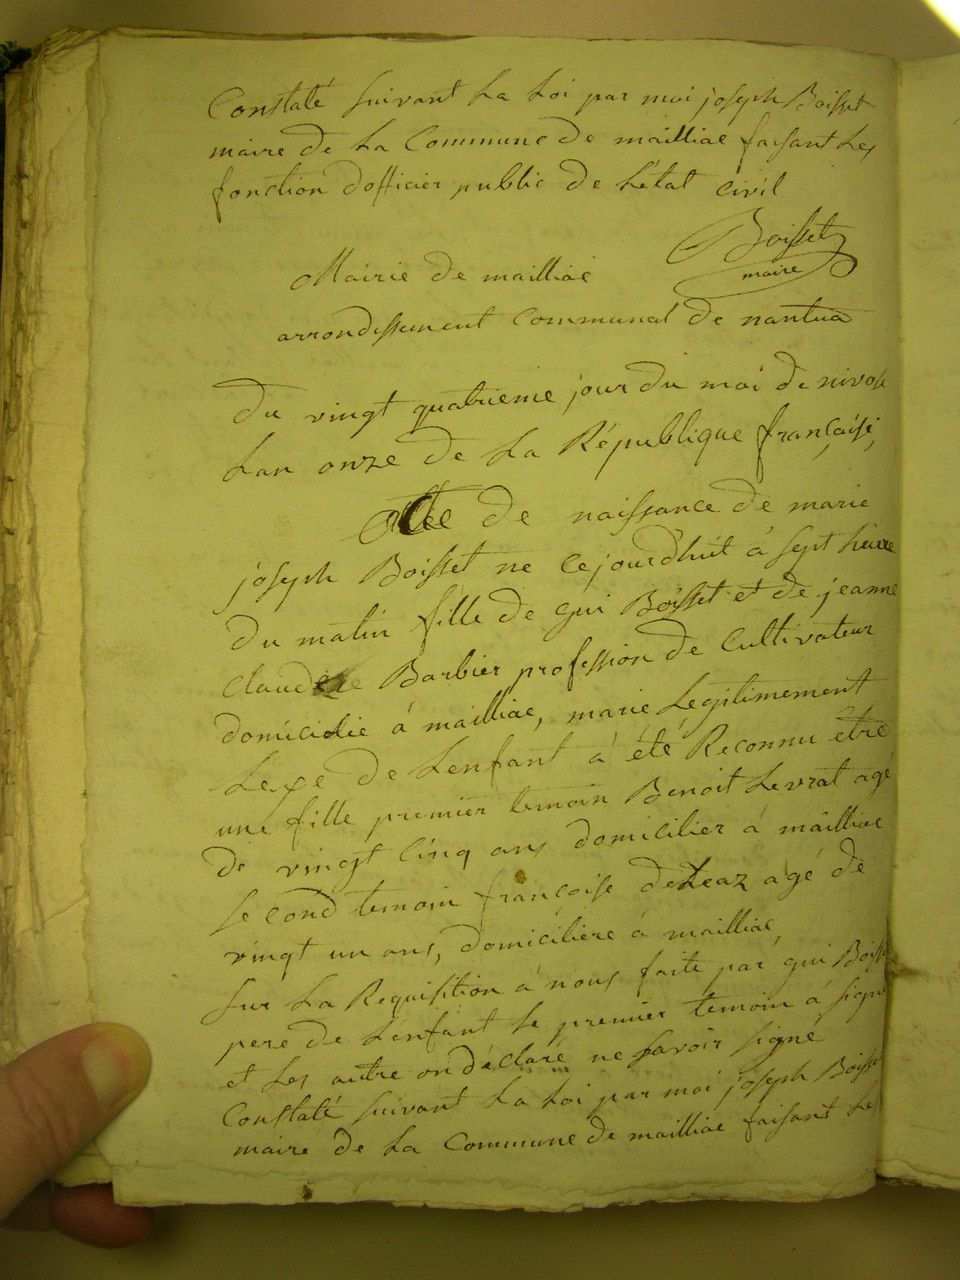 Constaté suivant La Loi par moi joseph Boisset
maire de La Commune de mailliac faisant Les
fonction dofficier public de Létat Civil
Boisset
maire
Mairie de mailliac
arrondissement Communal de nantua
Du vingt quatrieme jour du moi de nivose
Lan onze de La République française,
Acte de naissance de marie
joseph Boisset ne Cejourdhuit à sept heure
Du matin fille de gui Boisset et de jeanne
Claudine Barbier profession de Cultivateur
domicilie à mailliac, marie Legitimement
Lexe de Lenfant à été Reconnu être
une fille premier temoin Benoit Levrat agé
de vingt Cinq ans domicilier à mailliac
second temoin françoise deleaz agé de
vingt un ans, domicilière à mailliac,
sur La Requisition à nous faite par gui Boisset
pere de Lenfant Le premier temoin à signé
et Les autre on déclaré ne savoir signé
Constaté suivant La Loi par moi joseph Boisset
maire de La Commune de mailliac faisant Les